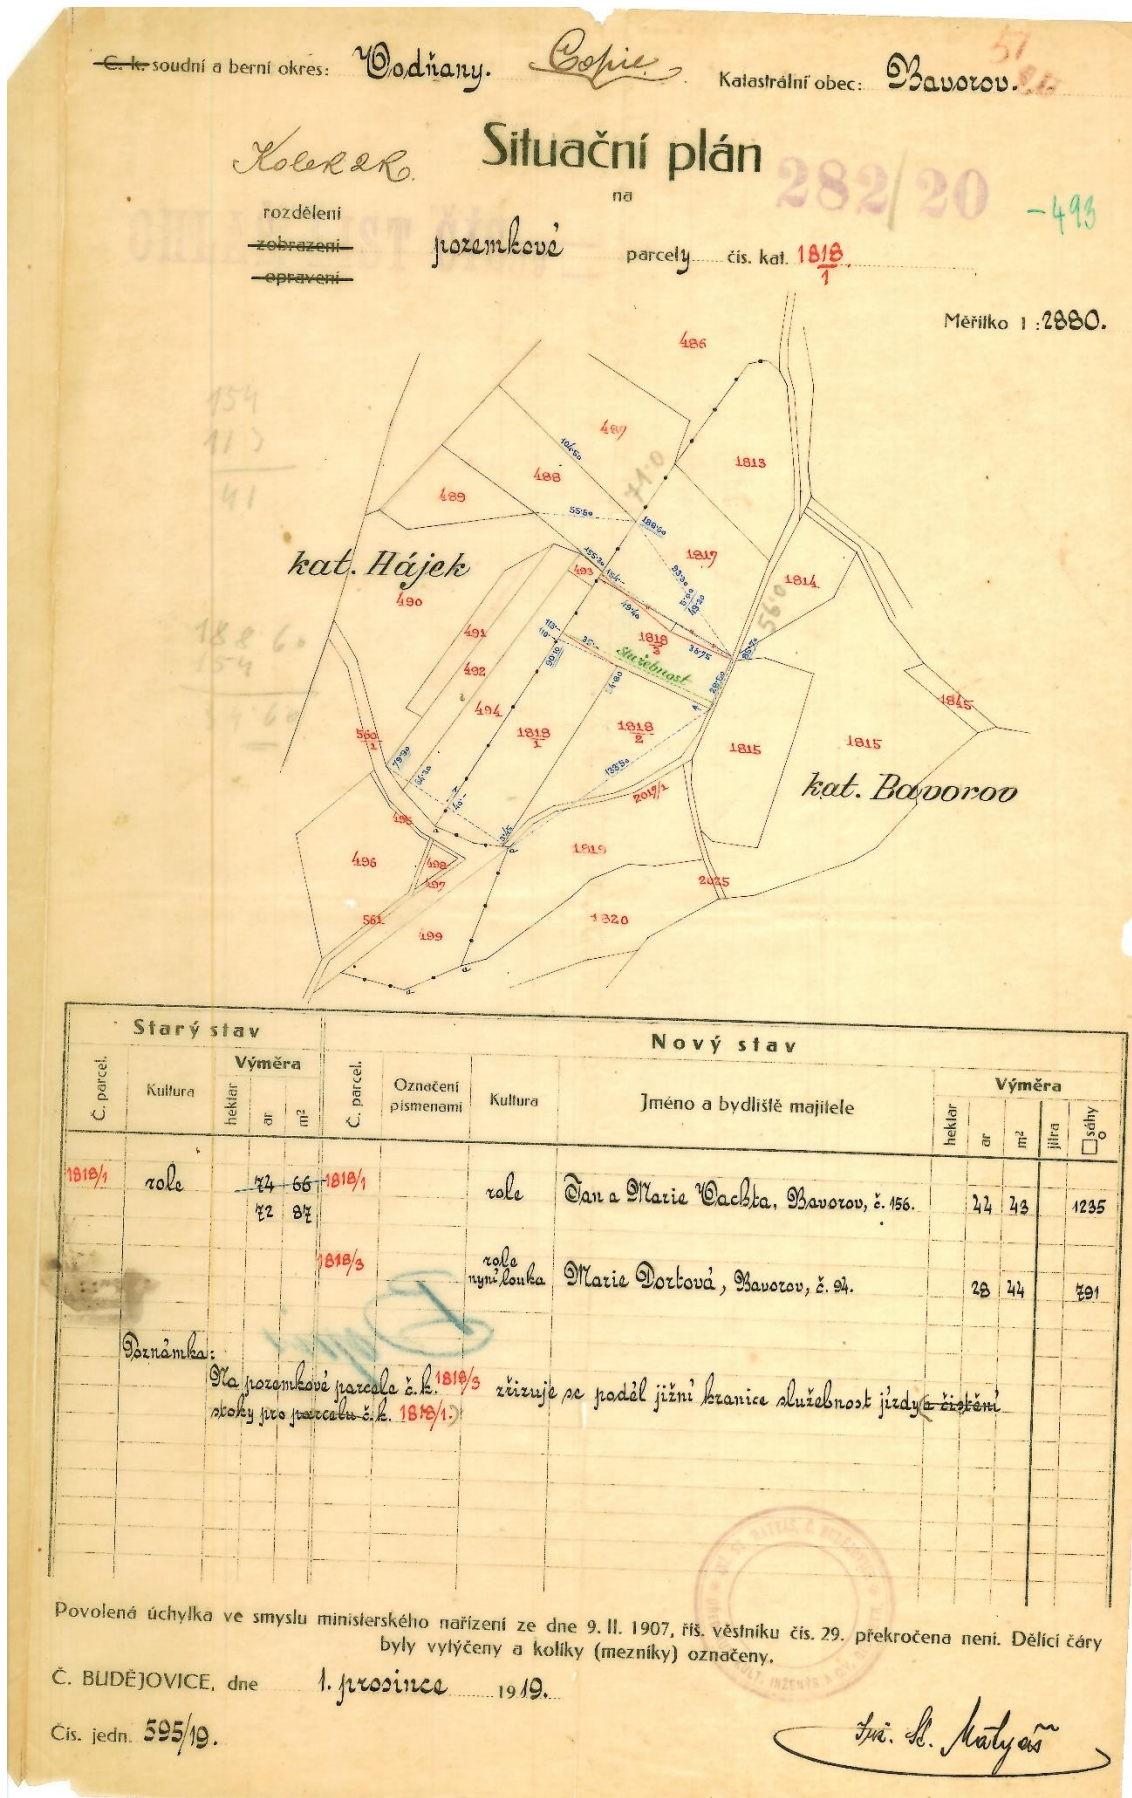 C. k. soudní a berní okres: Vodňany. Copie. Katastrální obec: Bavorov.
57
Kolek 2K. Situační plán
na
282/20
-493
rozdělení
zobrazení pozemkové parcely čís. kat. 1818/1
opravení
Měřítko 1:2880.
486
154
113
41
487
104·50
71·0
1813
488
489
55·50
188·60
kat. Hájek
155·20
154·
1817
493
93·30
5·00
49·20
1814
560
490
49·40
188 60
154
34 60
491
113·
110·
35·
1818/3
36·75
služebnost
90·10
492
54·80
28·50
494
1818/1
1818/2
1845
560/1
1815
1815
79·90
133·50
54·30
kat. Bavorov
40·
2017/1
495
3·45
496
498
1819
497
2025
561
499
1820
a
a
a
a
Starý stav Nový stav
Č. parcel. Kultura Výměra Č. parcel. Označení písmenami Kultura Jméno a bydliště majitele Výměra
hektar ar m² hektar ar m² jitra □sáhy
1818/1 role 74 66 1818/1 role Jan a Marie Vachta, Bavorov, č. 156. 44 43 1235
72 87
1818/3 role
nyní louka Marie Dortová, Bavorov, č. 94. 28 44 791
Poznámka:
Na pozemkové parcele č. k. 1818/3 zřizuje se podél jižní hranice služebnost jízdy (a čistění
stoky pro parcelu č. k. 1818/1.)
Povolená úchylka ve smyslu ministerského nařízení ze dne 9. II. 1907, říš. věstníku čís. 29. překročena není. Dělící čáry
byly vytýčeny a kolíky (mezníky) označeny.
Č. BUDĚJOVICE, dne 1. prosince 1919.
Čís. jedn. 595/19.
Inž. St. Matyáš